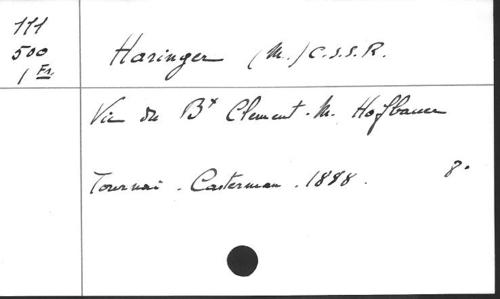 111
500
1 Fr.
Haringer (M.) C.S.S.R.
Vie du Bx Clement-M. Hofbauer
Tournai. Casterman. 1888. 8°